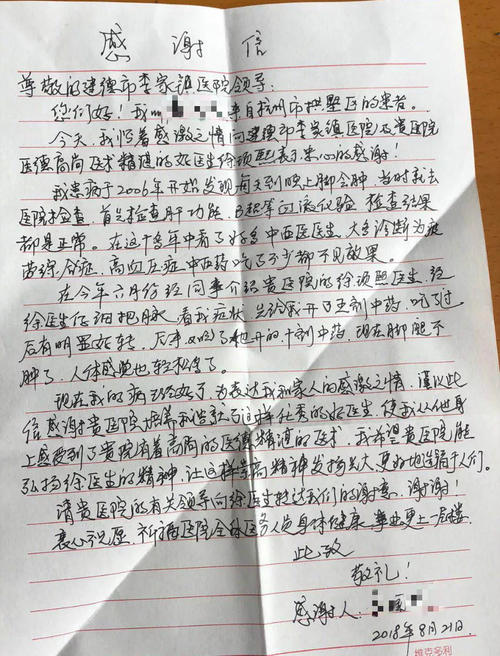 感谢信
尊敬的建德市李家镇医院领导：
您们好！我 来自杭州市拱墅区的患者。
今天，我怀着感激之情向建德市李家镇医院及贵医院
医德高尚医术精湛的好医生徐顺熙表示衷心的感谢！
我患病于2006年开始发现每天到晚上脚会肿，当时就去
医院检查，首先检查肝功能、B超等血液化验，检查结果
都是正常。在这十多年中看了好多中西医医生，大多诊断为疲
劳综合症，高血压症，中西药吃了不少都不见效果。
在今年六月份经同事介绍贵医院的徐顺熙医生，经
徐医生仔细把脉，看我症状，先给我开了五剂中药，吃了过
后有明显好转，后来又吃了他开的十剂中药，现在脚腿不
肿了，人体感觉也轻松多了。
现在我的病已经好了，为表达我和家人的感激之情，谨以此
信感谢贵医院培养和造就了这样优秀的好医生，使我从他身
上感受到了贵院有着高尚的医德精湛的医术，我希望贵医院能
弘扬徐医生的精神，让这样崇高精神发扬光大更好地造福于人们。
请贵医院的有关领导向徐医生转达我们的谢意，谢谢！
衷心祝愿，祈祷医院全体医务人员身体健康，事业更上一层楼
此致
敬礼！
感谢人：
2018年8月21日.
维克多利